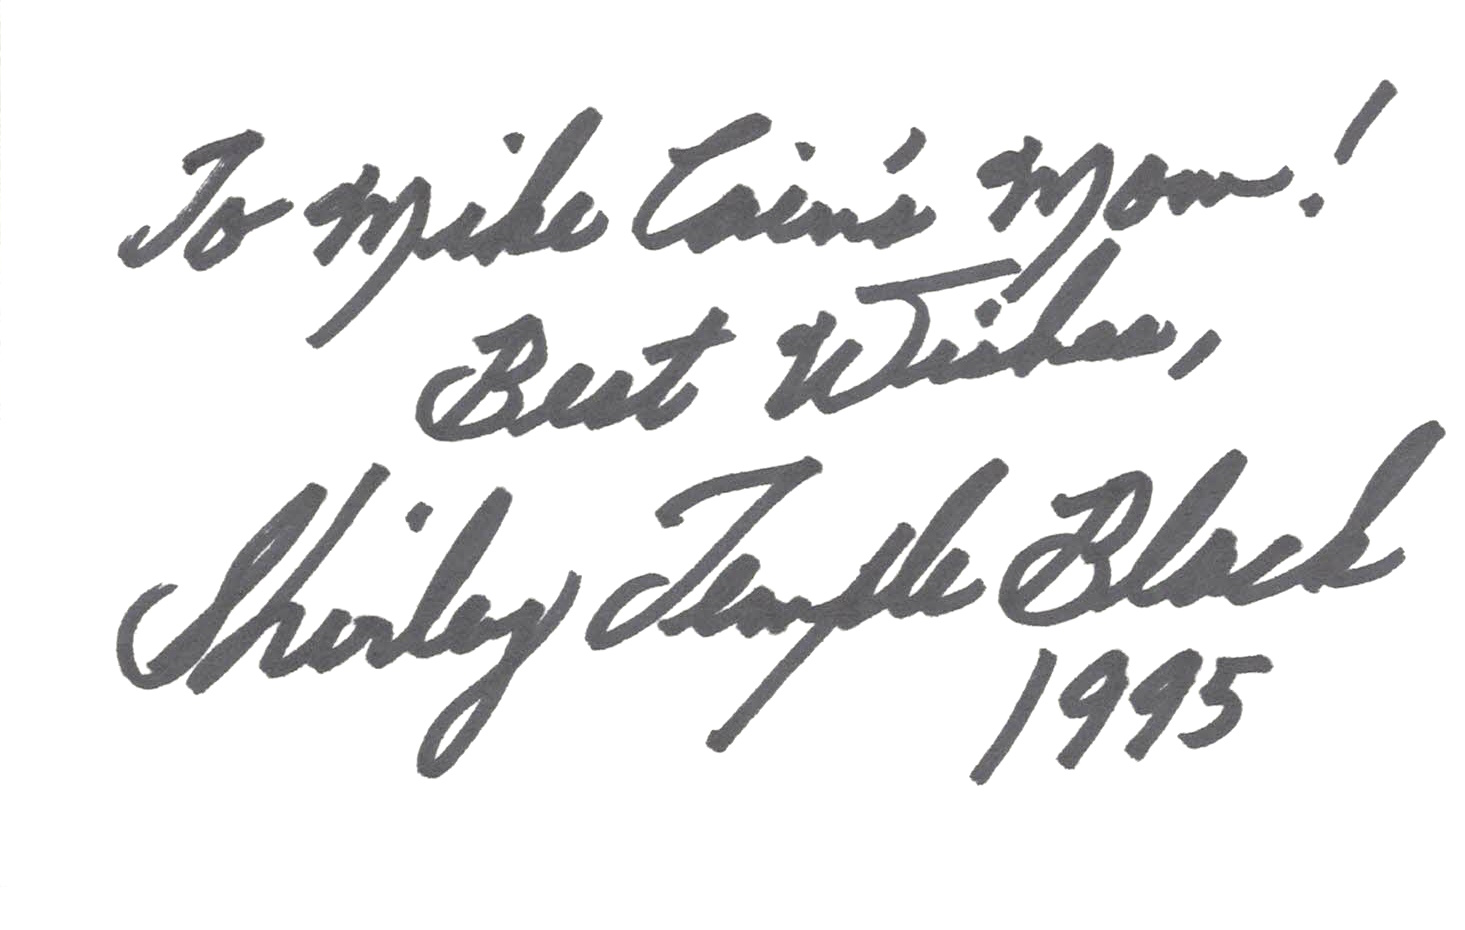 To Mike Cain's Mom!
Best Wishes,
Shirley Temple Black
1995